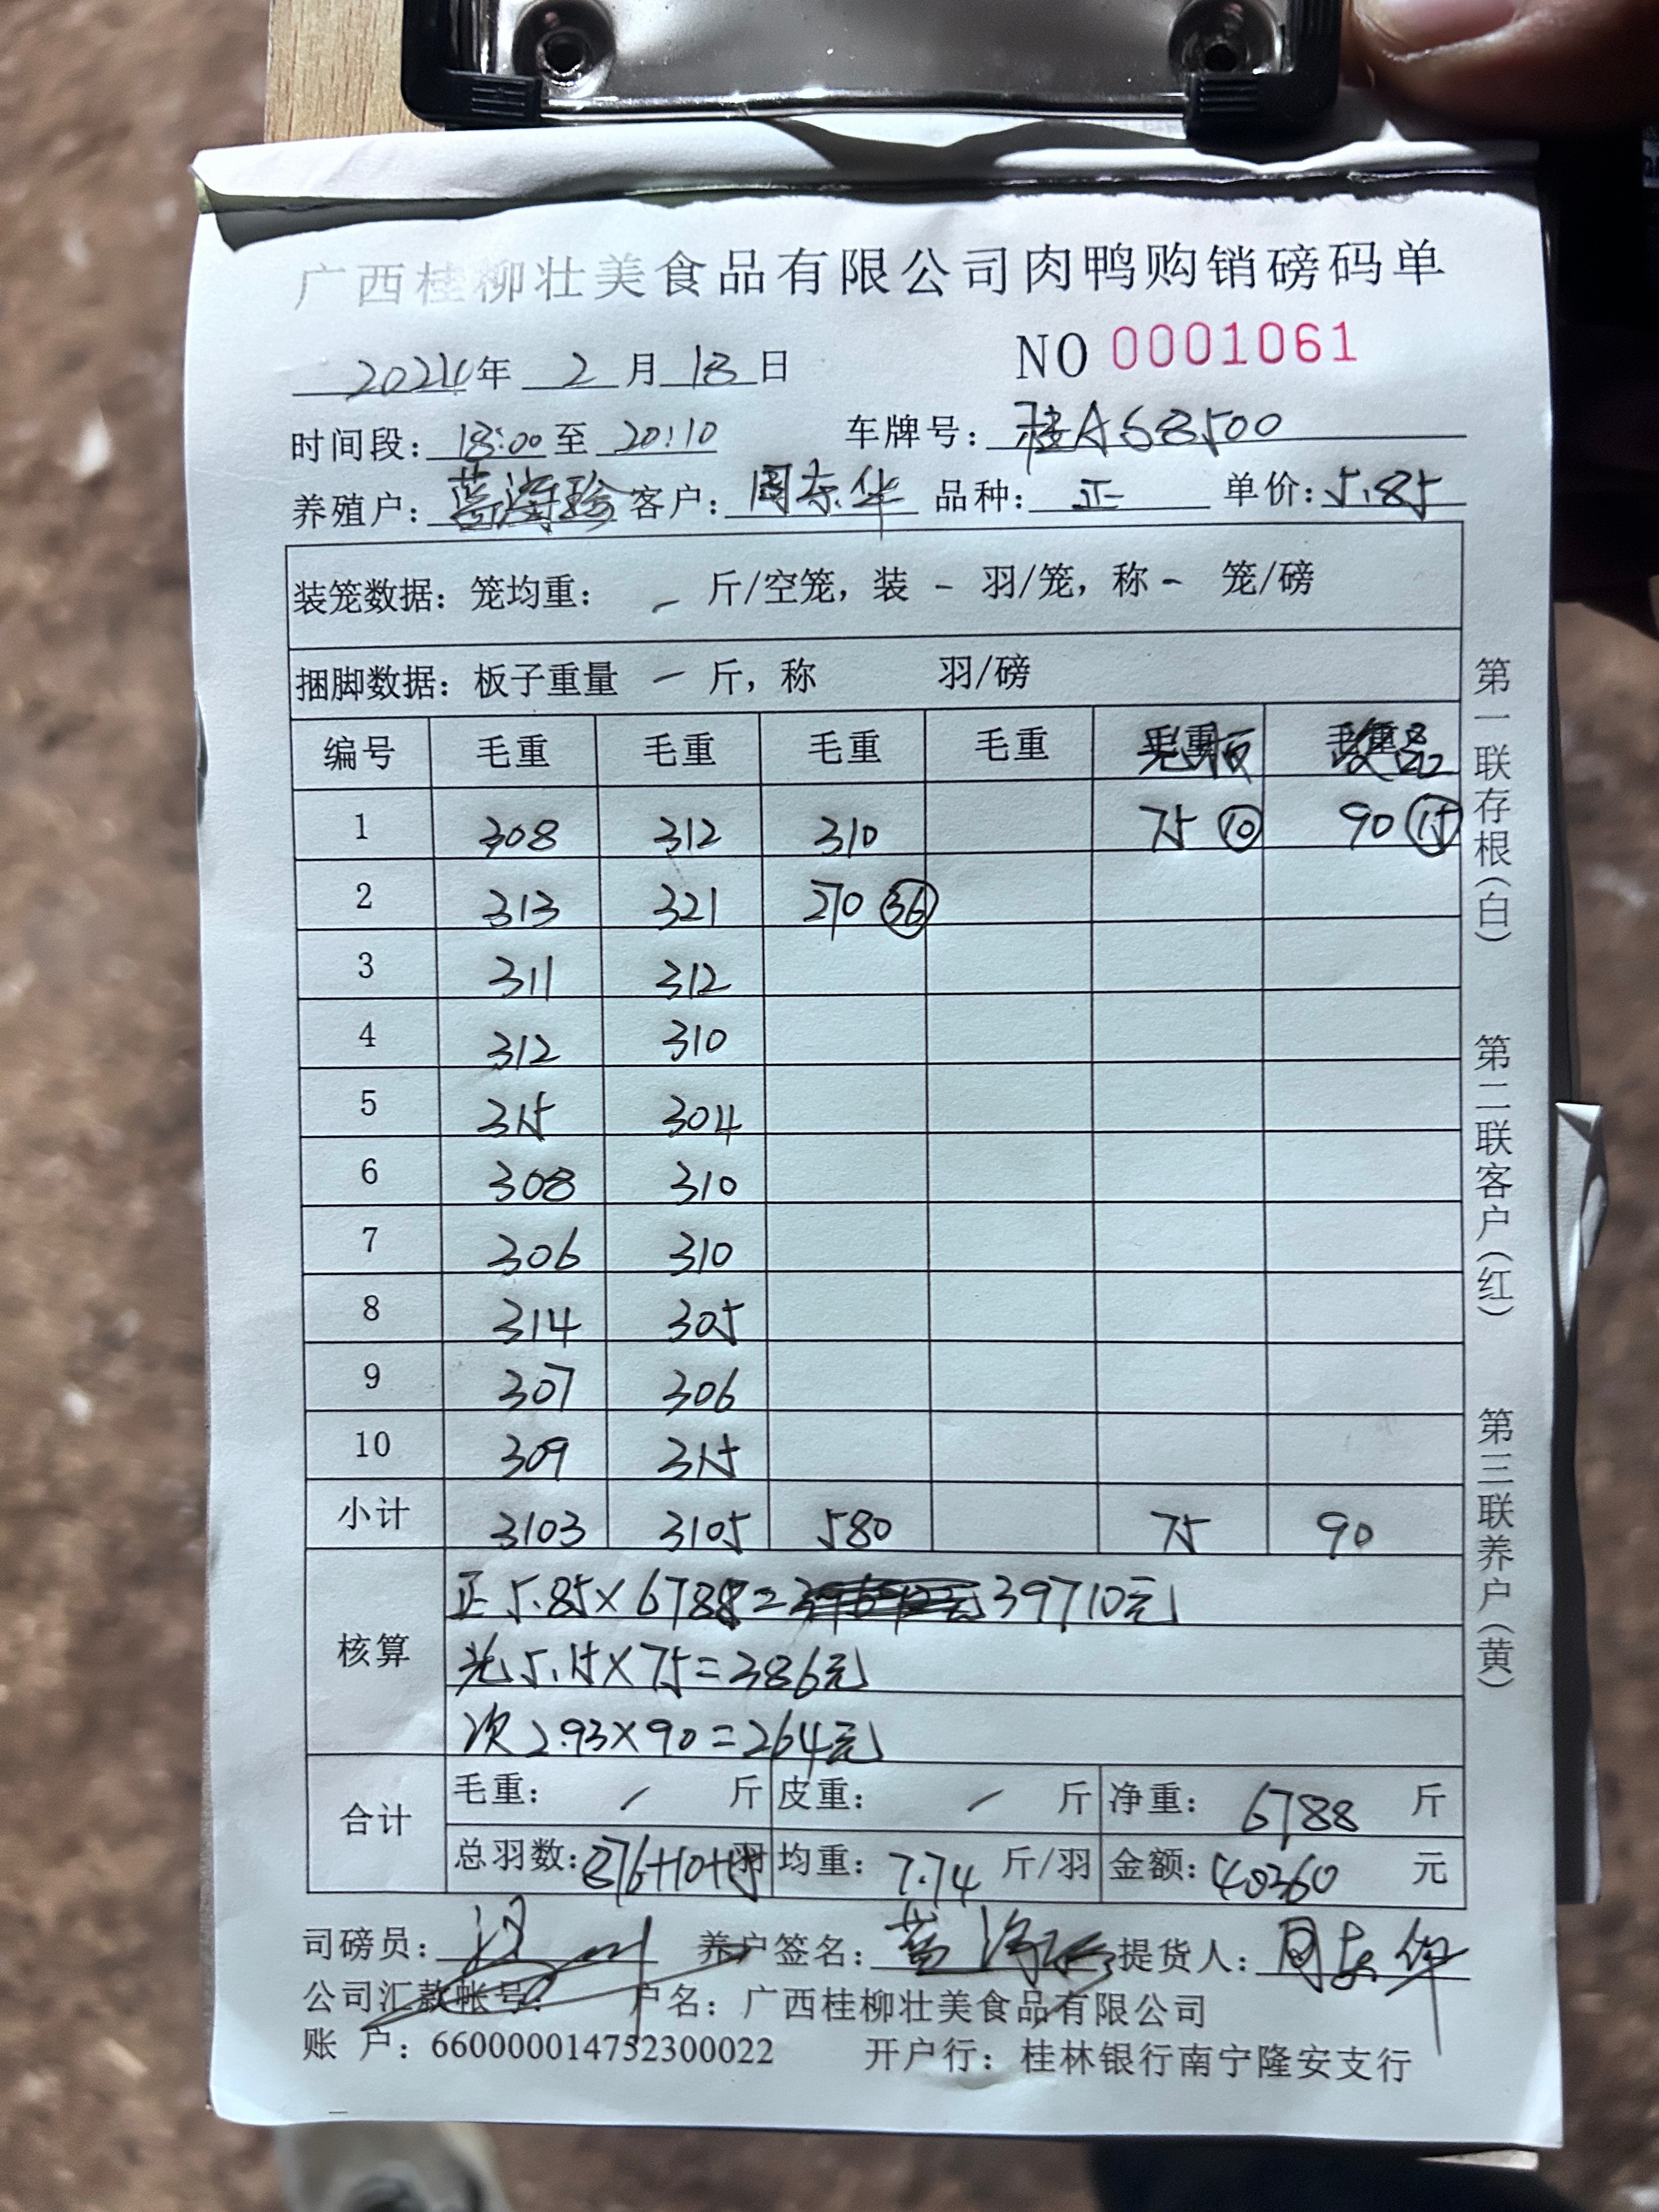 广西桂柳壮美食品有限公司肉鸭购销磅码单
NO 0001061
2024年 2 月 18 日
时间段: 18:00 至 20:10 车牌号: 桂A68500
养殖户: 蓝海珍 客户: 周东华 品种: 正 单价: 5.85
装笼数据: 笼均重: - 斤/空笼, 装 - 羽/笼, 称 - 笼/磅
捆脚数据: 板子重量 - 斤, 称 羽/磅
编号 毛重 毛重 毛重 毛重 毛重 毛重
1 308 312 310 75 ⑩ 90 ⑮
2 313 321 270 ㊱
3 311 312
4 312 310
5 315 304
6 308 310
7 306 310
8 314 305
9 307 306
10 309 315
小计 3103 3105 580 75 90
核算
正 5.85×6788= 39710元
光 5.15×75=386元
次 2.93×90=264元
合计
毛重: / 斤 皮重: / 斤 净重: 6788 斤
总羽数: 876+10+15 羽 均重: 7.74 斤/羽 金额: 40360 元
司磅员: 养户签名: 蓝海珍 提货人: 周东华
公司汇款帐号: 户名: 广西桂柳壮美食品有限公司
账 户: 660000014752300022 开户行: 桂林银行南宁隆安支行
第一联存根(白) 第二联客户(红) 第三联养户(黄)